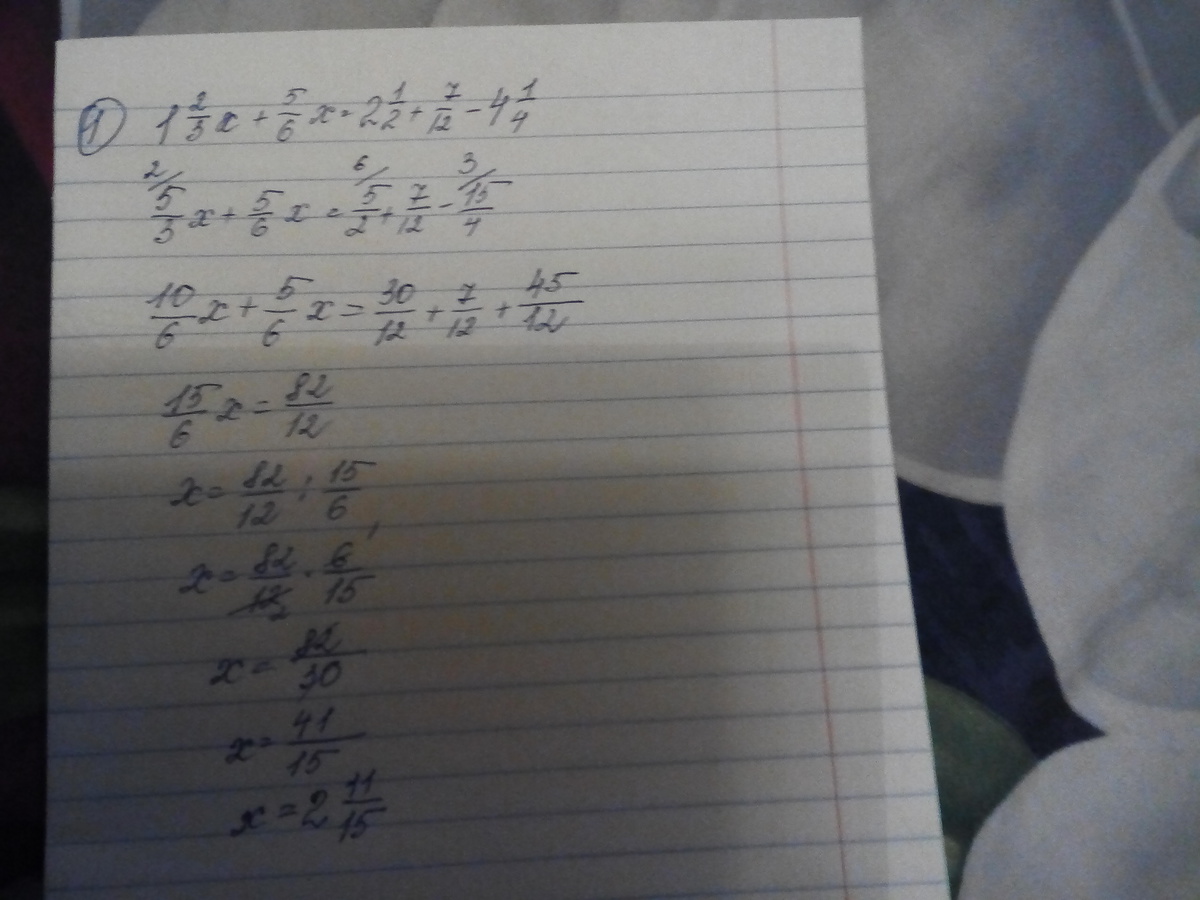 ① 1 2/3 x + 5/6 x = 2 1/2 + 7/12 - 4 1/4
2/ 6/ 3/
5/3 x + 5/6 x = 5/2 + 7/12 - 15/4
10/6 x + 5/6 x = 30/12 + 7/12 + 45/12
15/6 x = 82/12
x = 82/12 : 15/6
x = 82/12 2 · 6/15 1
x = 82/30
x = 41/15
x = 2 11/15